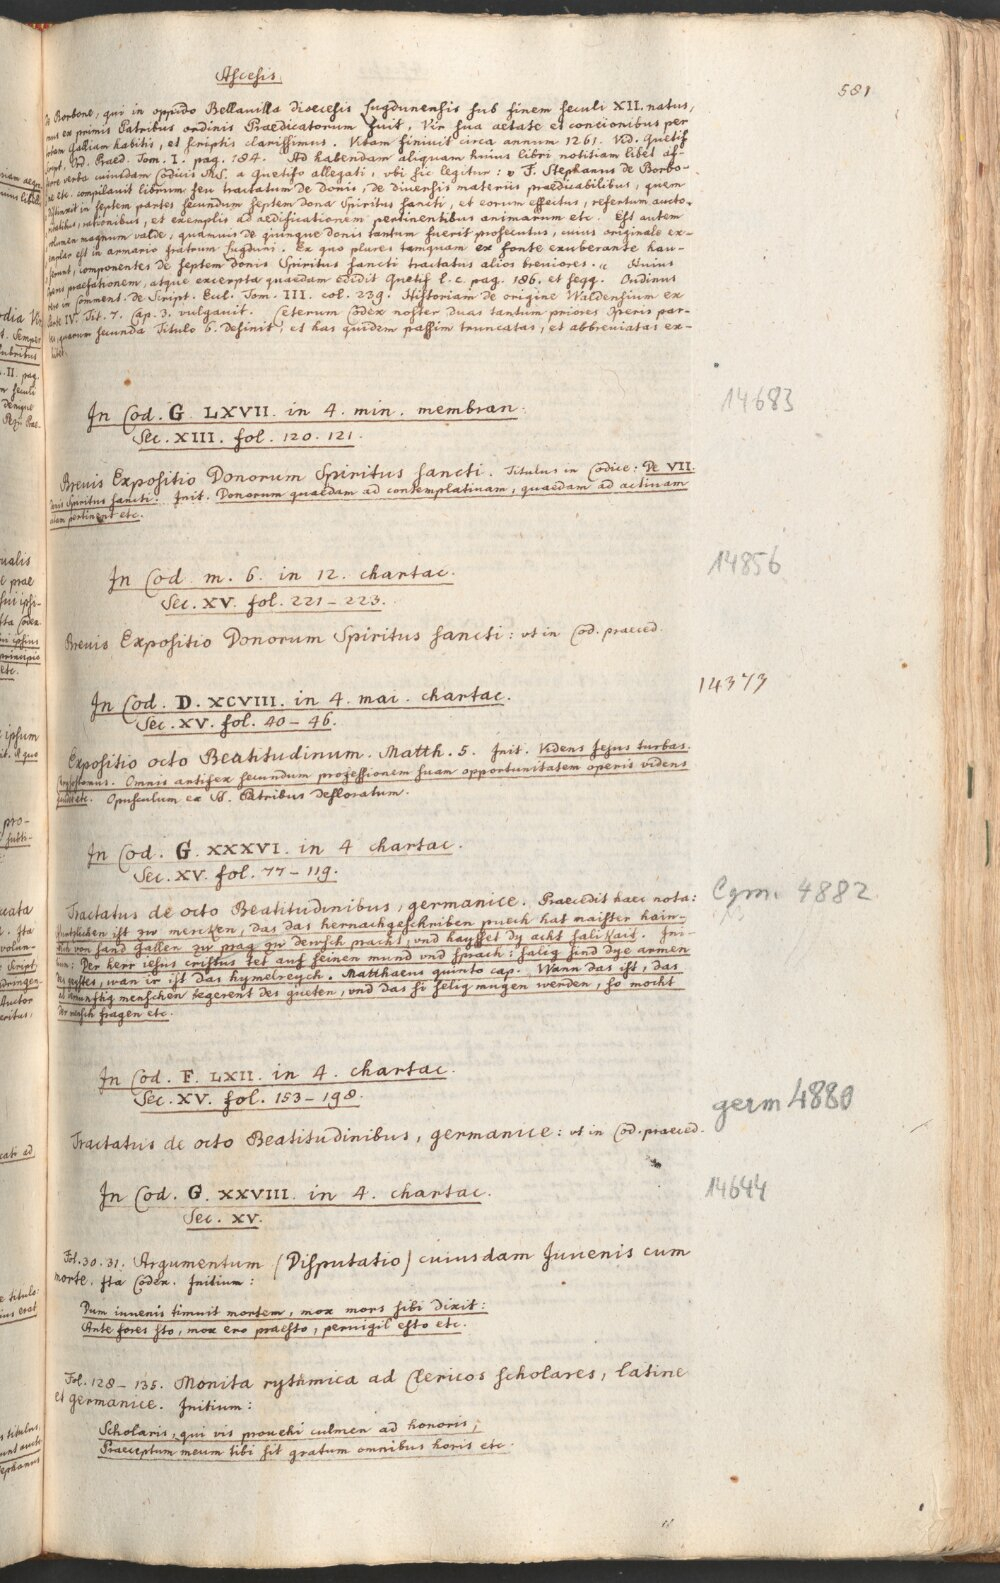 Ascesis.
581
de Borbone, qui in oppido Bellauilla dioecesis Lugdunensis sub finem seculi XII. natus,
unus ex primis Patribus ordinis Praedicatorum fuit, Vir sua aetate et concionibus per
totam Galliam habitis, et scriptis clarissimus. Vitam finiuit circa annum 1261. Vid. Quetif
Script. Ord. Praed. Tom. I. pag. 184. Ad habendam aliquam huius libri notitiam libet af-
ferre verba cuiusdam Codicis MS. a Quetifo allegati, vbi sic legitur: „ F. Stephanus de Borbo-
ne etc. compilauit librum seu tractatum de donis, de diuersis materiis praedicabilibus, quem
distinxit in septem partes secundum septem dona Spiritus sancti, et eorum effectus, refertum aucto-
ritatibus, rationibus, et exemplis ad aedificationem pertinentibus animarum etc. Est autem
volumen magnum valde, quamuis de quinque donis tantum fuerit prosecutus, cuius originale ex-
emplar est in armario fratrum Lugduni. Ex quo plures tamquam ex fonte exuberante hau-
serunt, componentes de septem donis Spiritus sancti tractatus alios breuiores. „ Huius
operis praefationem, atque excerpta quaedam edidit Quetif l. c. pag. 186. et seqq. Oudinus
vero in Comment. de Script. Eccl. Tom. III. col. 239. Historiam de origine Waldensium ex
Parte IV. Tit. 7. Cap. 3. vulgauit. Ceterum Codex noster duas tantum priores Operis par-
tes, quarum secunda Titulo 6. definit, et has quidem passim truncatas, et abbreuiatas ex-
hibet.
In Cod. G. LXVII. in 4. min. membran.
14683
Sec. XIII. fol. 120. 121.
Breuis Expositio Donorum Spiritus sancti. Titulus in Codice: De VII.
donis Spiritus sancti. Init. Donorum quaedam ad contemplatiuam, quaedam ad actiuam
vitam pertinent etc.
In Cod. m. 6. in 12. chartac.
14856
Sec. XV. fol. 221 – 223.
Breuis Expositio Donorum Spiritus sancti: vt in Cod. praeced.
In Cod. D. XCVIII. in 4. mai. chartac.
14373
Sec. XV. fol. 40 – 46.
Expositio octo Beatitudinum. Matth. 5. Init. Videns Jesus turbas.
Crysostomus. Omnis artifex secundum professionem suam opportunitatem operis videns
gaudet etc. Opusculum ex SS. Patribus defloratum.
In Cod. G. XXXVI. in 4 chartac.
Sec. XV. fol. 77 – 119.
Cgm. 4882
Tractatus de octo Beatitudinibus, germanice. Praecedit haec nota:
ist zu mercken, das das hernachgeschriben puech hat maister hain-
rich von sand Gallen zu prag zu dewsch pracht, vnd haysset dy acht salikait. Ini-
tium: Der herr iesus cristus tet auf seinen mund vnd sprach: salig sind dye armen
des geystes, wan ir ist das hymelreych. Matthaeus quinto cap. Wann das ist, das
al vernunftig menschen begerent des gueten, vnd das si selig mugen werden, so mocht
der mensch fragen etc.
In Cod. F. LXII. in 4. chartac.
Sec. XV. fol. 153 – 198.
germ 4880
Tractatus de octo Beatitudinibus, germanice: vt in Cod. praeced.
In Cod. G. XXVIII. in 4. chartac.
14644
Sec. XV.
Fol. 30. 31. Argumentum (Disputatio) cuiusdam Juuenis cum
morte. Ita Codex. Initium:
Dum iuuenis timuit mortem, mox mors sibi dixit:
Ante fores sto, mox ero praesto, peruigil esto etc.
Fol. 128 – 135. Monita rythmica ad Clericos scholares, latine
et germanice. Initium:
Scholaris, qui vis prouehi culmen ad honoris,
Praeceptum meum tibi sit gratum omnibus horis etc.